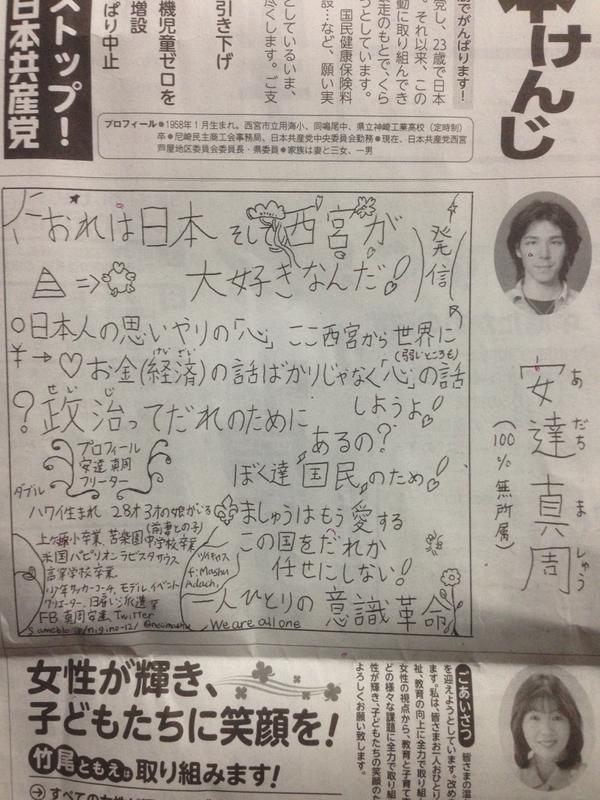 本けんじ
でがんばります!
党し、23歳で日本
。それ以来、この
動に取り組んでき
走のもとで、くら
つとしています。
国民健康保険料
設…など、願い実
としているいま、
尽くします。ご支
引き下げ
機児童ゼロを
増設
ぱり中止
ストップ!
日本共産党
プロフィール●1958年1月生まれ。西宮市立用海小、同鳴尾中、県立神崎工業高校(定時制)
卒●尼崎民主商工会事務局、日本共産党中央委員会勤務●現在、日本共産党西宮
芦屋地区委員会委員長・県委員●家族は妻と三女、一男
おれは日本 そして西宮が
大好きなんだ!
発信
⇒
日本人の思いやりの「心」ここ西宮から世界に
(弱いところも)
¥→♡お金(経済)の話ばかりじゃなく「心」の話
けいざい
しようよ!
せいじ
?政治ってだれのために
あるの?
ぼく達国民のため!
プロフィール
安達真周
フリーター
ダブル
ハワイ生まれ 28才 3才の娘がいる
(前妻との子)
上ヶ原小卒業 苦楽園中学校卒業
米国パビリオンラビスタサウス
高等学校卒業
サッカーコーチ、モデル、イベント
クリエーター、日雇い派遣等
FB 真周安達、Twitter
ツイキャス
f:Mashu
Adachi,
ましゅうはもう愛する
この国をだれか
任せにしない!
一人ひとりの意識革命
We are all one
安達真周
あだち ましゅう
(100%無所属)
女性が輝き、
子どもたちに笑顔を!
竹尾ともえは取り組みます!
ごあいさつ
皆さまの温
を迎えようとしています。改め
ます。私は、皆さまお一人おひとり
祉、教育の向上に全力で取り組
女性の視点から、教育と子育て
どの様々な課題に全力で取り組
性が輝き、子どもたちの笑顔のた
よろしくお願い致します。